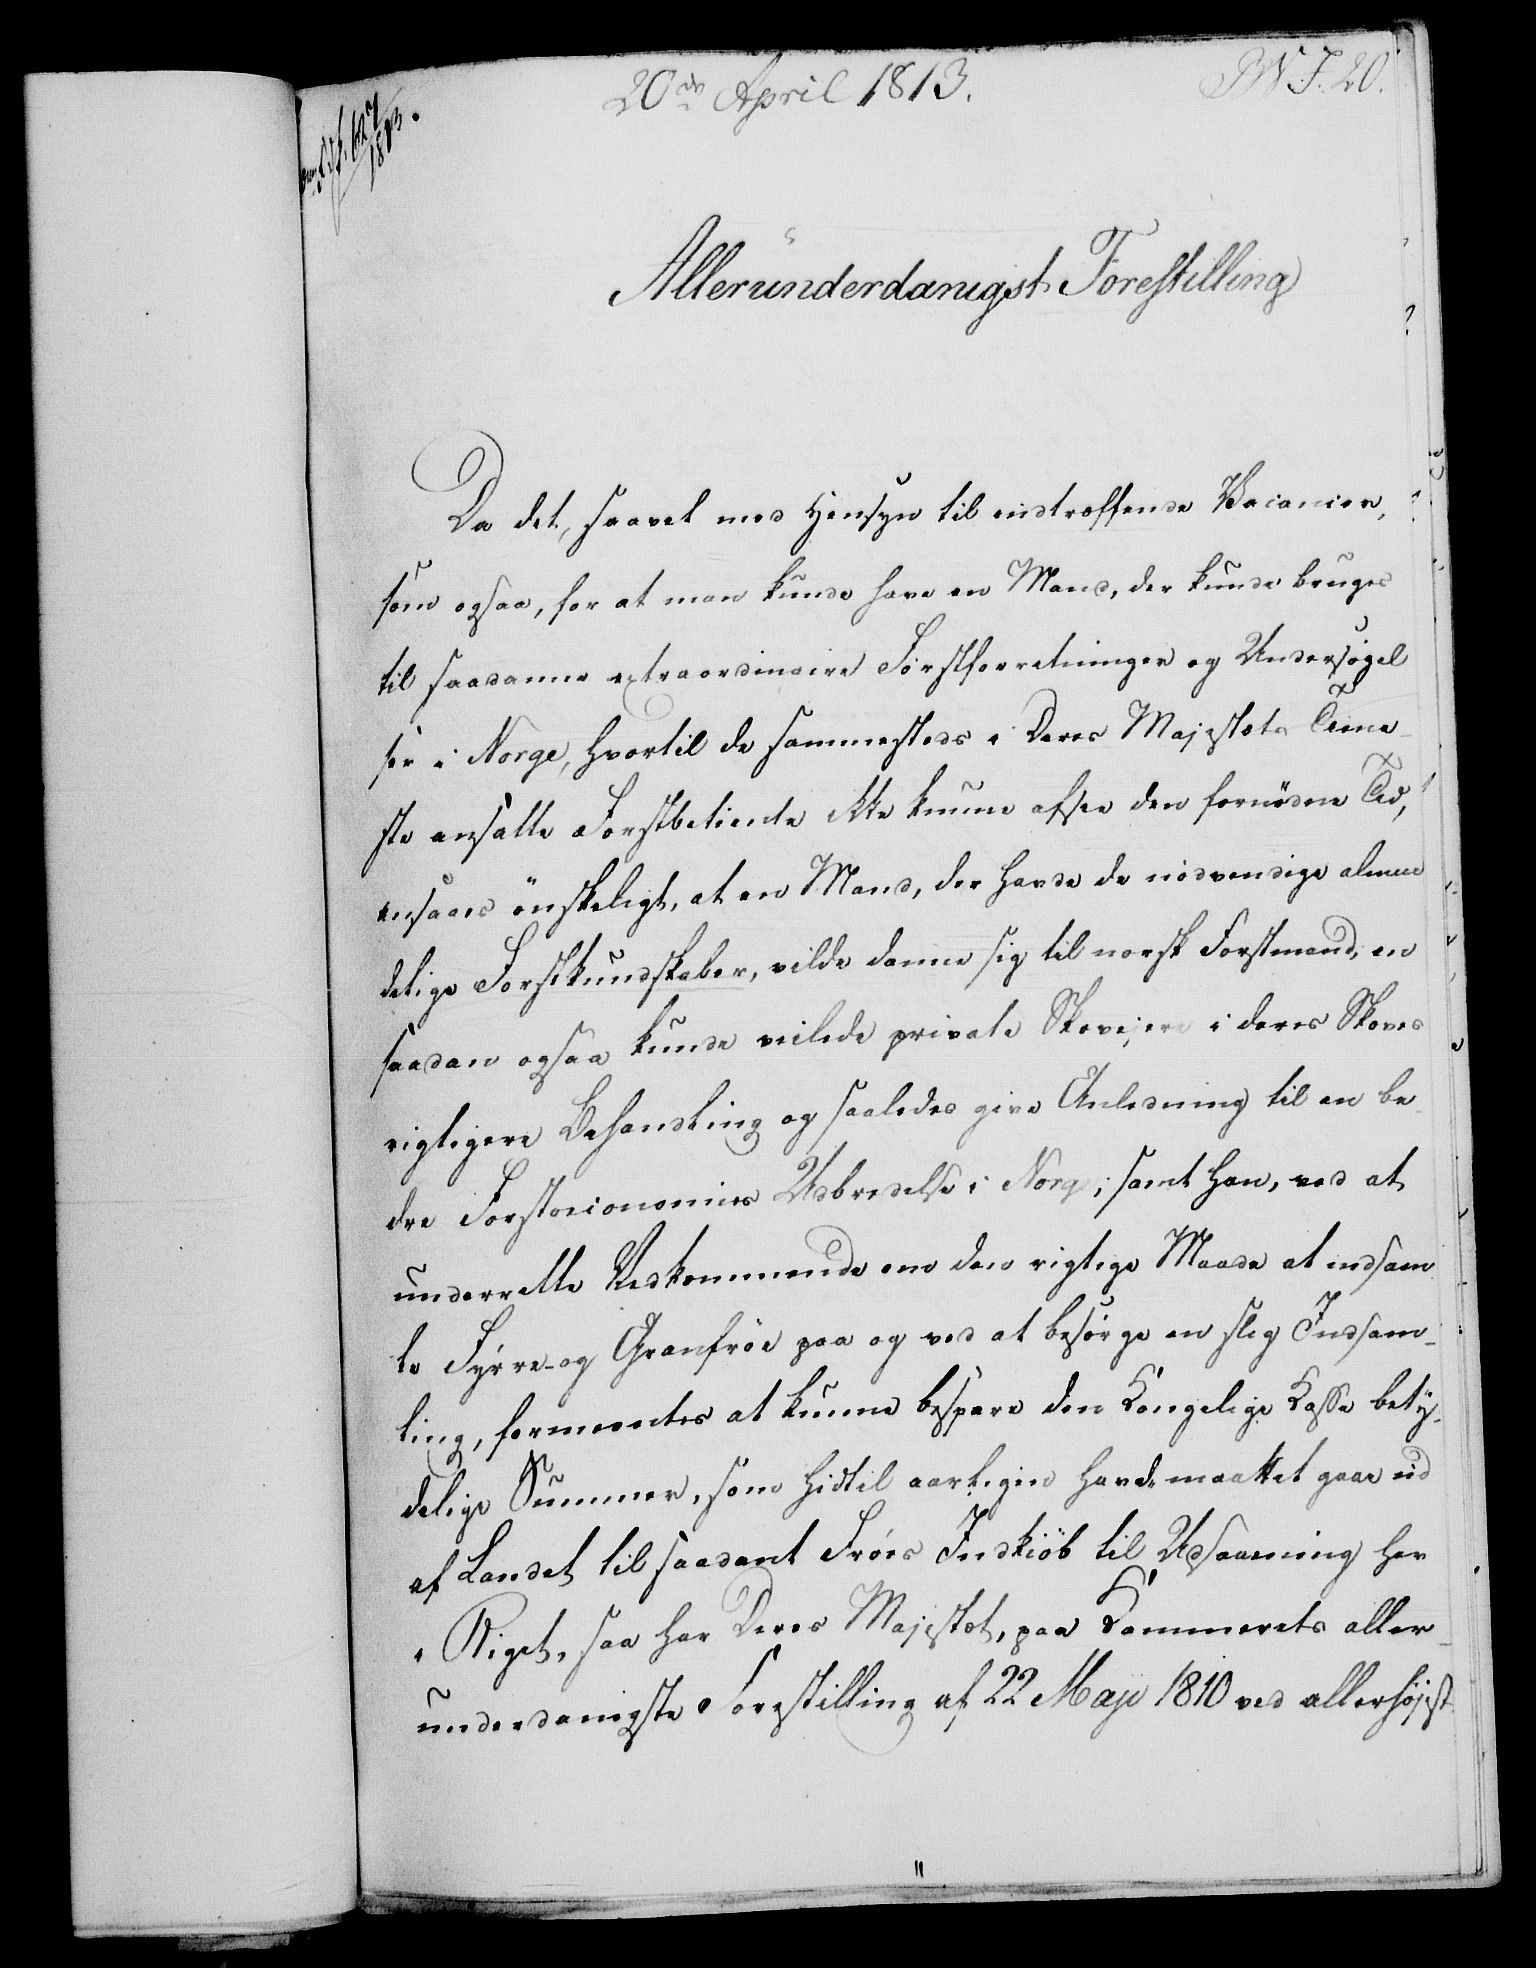 20de April 1813.
N J. 20.
627
1813.
Alleründerdanigst Forestilling
Da det, saavel med Hensyn til indtræffende Vacancer,
som ogsaa, for at man kunde have en Mand, der kunde bruges
til saadanne extraordinaire Forstforretninger og Undersøgel
ser i Norge, hvortil de sammesteds i Deres Majestæts Tiene-
ste ansatte Forstbetiente ikke kunne afsee den fornødne Tid,
ansaaes ønskeligt, at en Mand, der havde de nødvendige almin
delige Forstkundskaber, vilde danne sig til norsk Forstmand, en
saadan ogsaa kunde veilede private Skovejere i deres Skoves
rigtigere Behandling og saaledes give Anledning til en be-
dre Forstoeconomies Udbredelse i Norge; samt han, ved at
underrette Vedkommende om den rigtige Maade at indsam
le Fyrre- og Granfrøe paa og ved at besørge en slig Indsam-
ling, formeentes at kunne bespare den Kongelige Kasse bety-
delige Summer, som hidtil aarligen havde maattet gaae ud
af Landet til saadant Frøes Indkiøb til Udsaaening her
i Riget, saa har Deres Majestæt, paa Kammerets aller-
underdanigste Forestilling af 22 Maji 1810 ved allerhøjest